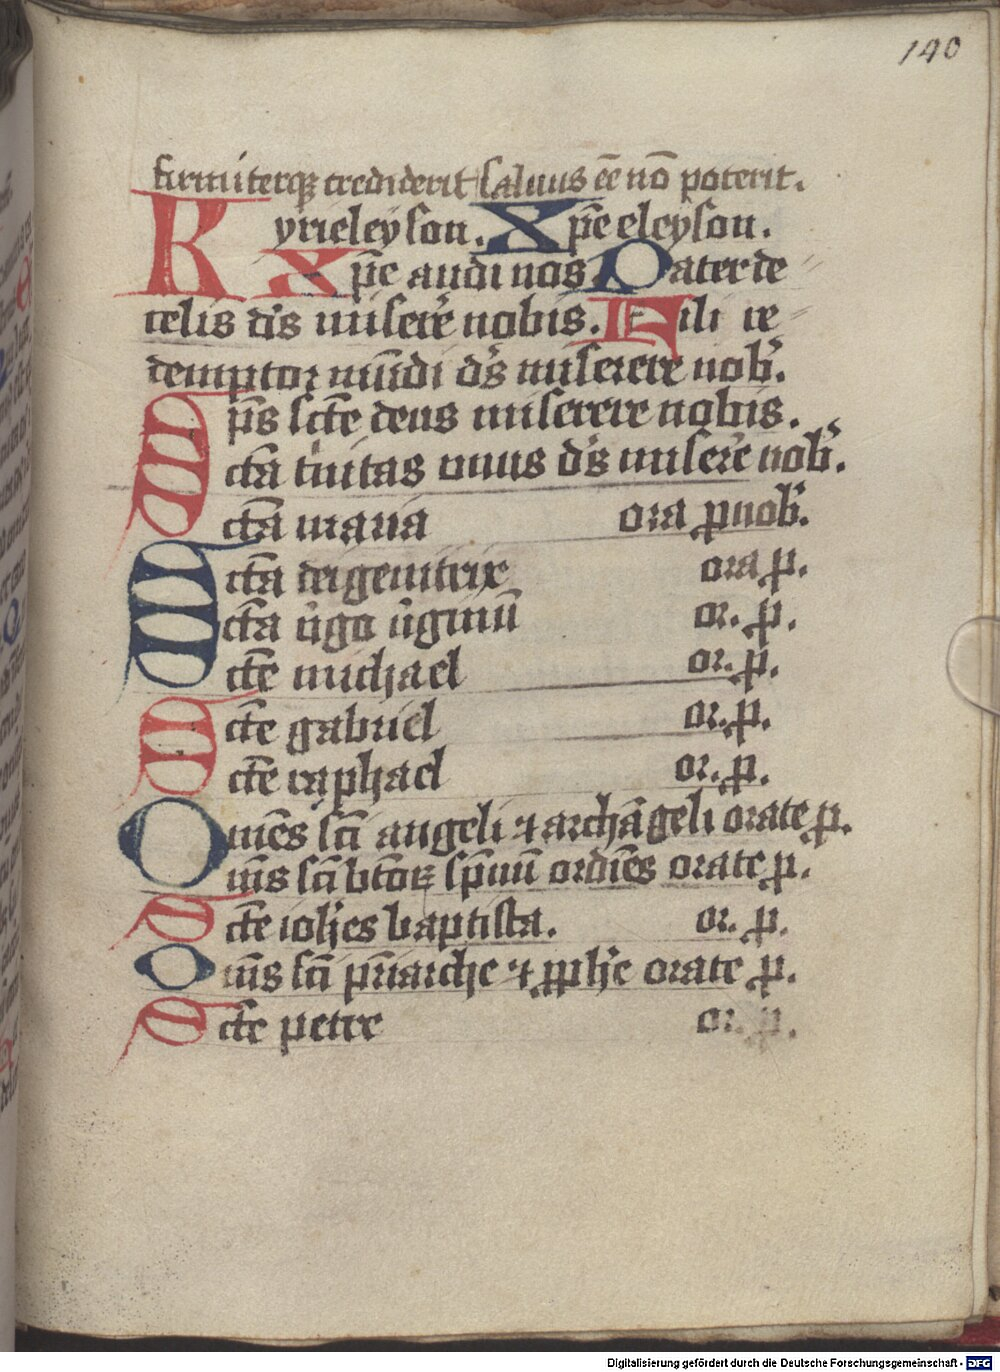 140
firmiterqꝫ crediderit saluus eē nō poterit.
Kyrieleyson. Xp̄e eleyson.
Xp̄e audi nos Pater de
celis d̄s miserē nobis. Fili re
demptor mūdi d̄s miserere nob̄.
Sp̄s sc̄te deus miserere nobis.
Sc̄ta t̓nitas vnus d̄s miserē nob̄.
Sc̄ta maria ora p̄ nob̄.
Sc̄ta dei genitrix ora p̄.
Sc̄ta v̓go v̓ginū or. p̄.
Sc̄te michael or. p̄.
Sc̄te gabriel or. p̄.
Sc̄te raphael or. p̄.
Omēs sc̄i angeli ⁊ archāgeli orate p̄.
Om̄s sc̄i b̄toꝝ sp̄uū ordīes orate p̄.
Sc̄te ioh̄es baptista. or. p̄.
Om̄s sc̄i pr̄iarche ⁊ ꝓph̄e orate p̄.
Sc̄te petre or. p̄.
Digitalisierung gefördert durch die Deutsche Forschungsgemeinschaft - DFG